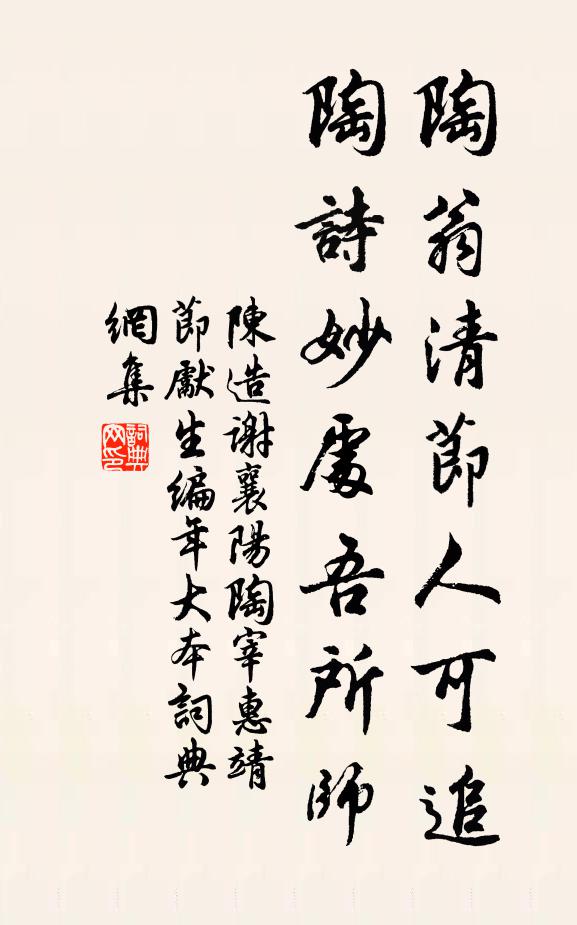 陶翁清節人可追
陶詩妙處吾所師
陳造謝襄陽陶宰惠靖
節獻生編年大本詞典
網集
詞典
网印